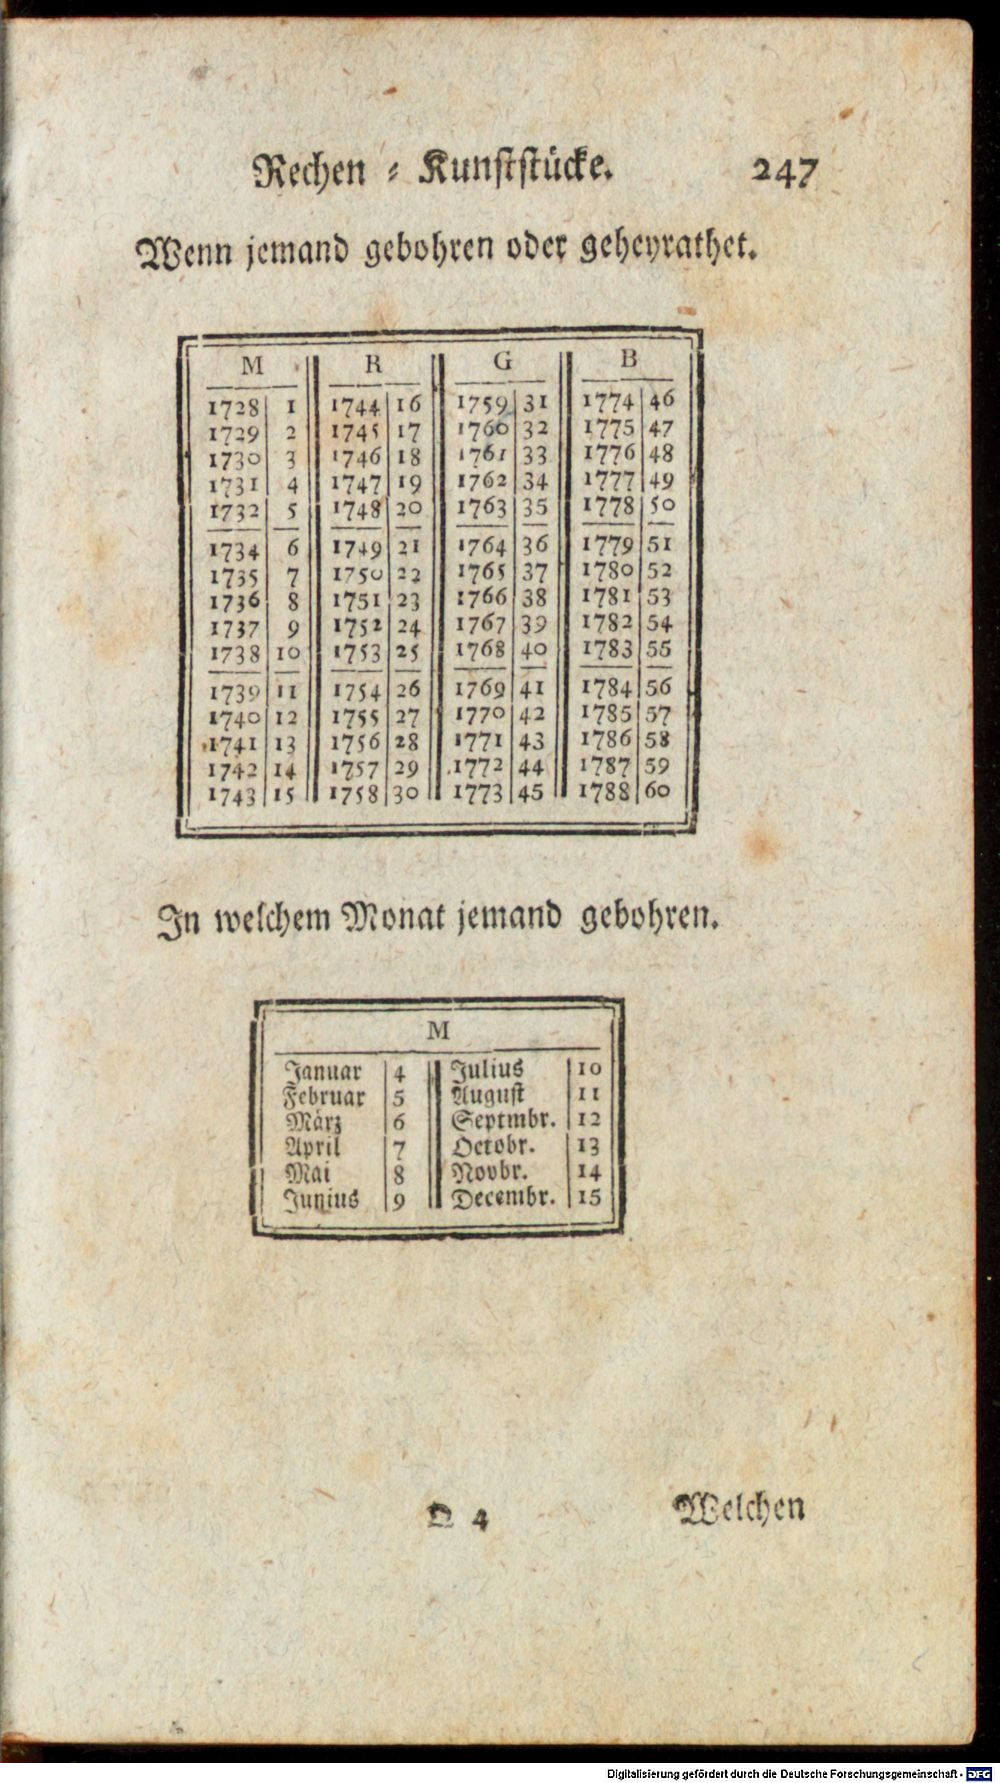 Rechen ⸗ Kunſtſtücke. 247
Wenn jemand gebohren oder geheyrathet.
M R G B
1728 1 1744 16 1759 31 1774 46
1729 2 1745 17 1760 32 1775 47
1730 3 1746 18 1761 33 1776 48
1731 4 1747 19 1762 34 1777 49
1732 5 1748 20 1763 35 1778 50
1734 6 1749 21 1764 36 1779 51
1735 7 1750 22 1765 37 1780 52
1736 8 1751 23 1766 38 1781 53
1737 9 1752 24 1767 39 1782 54
1738 10 1753 25 1768 40 1783 55
1739 11 1754 26 1769 41 1784 56
1740 12 1755 27 1770 42 1785 57
1741 13 1756 28 1771 43 1786 58
1742 14 1757 29 1772 44 1787 59
1743 15 1758 30 1773 45 1788 60
In welchem Monat jemand gebohren.
M
Januar 4 Julius 10
Februar 5 Auguſt 11
März 6 Septmbr. 12
April 7 Octobr. 13
Mai 8 Novbr. 14
Junius 9 Decembr. 15
Q 4 Welchen
Digitalisierung gefördert durch die Deutsche Forschungsgemeinschaft - DFG